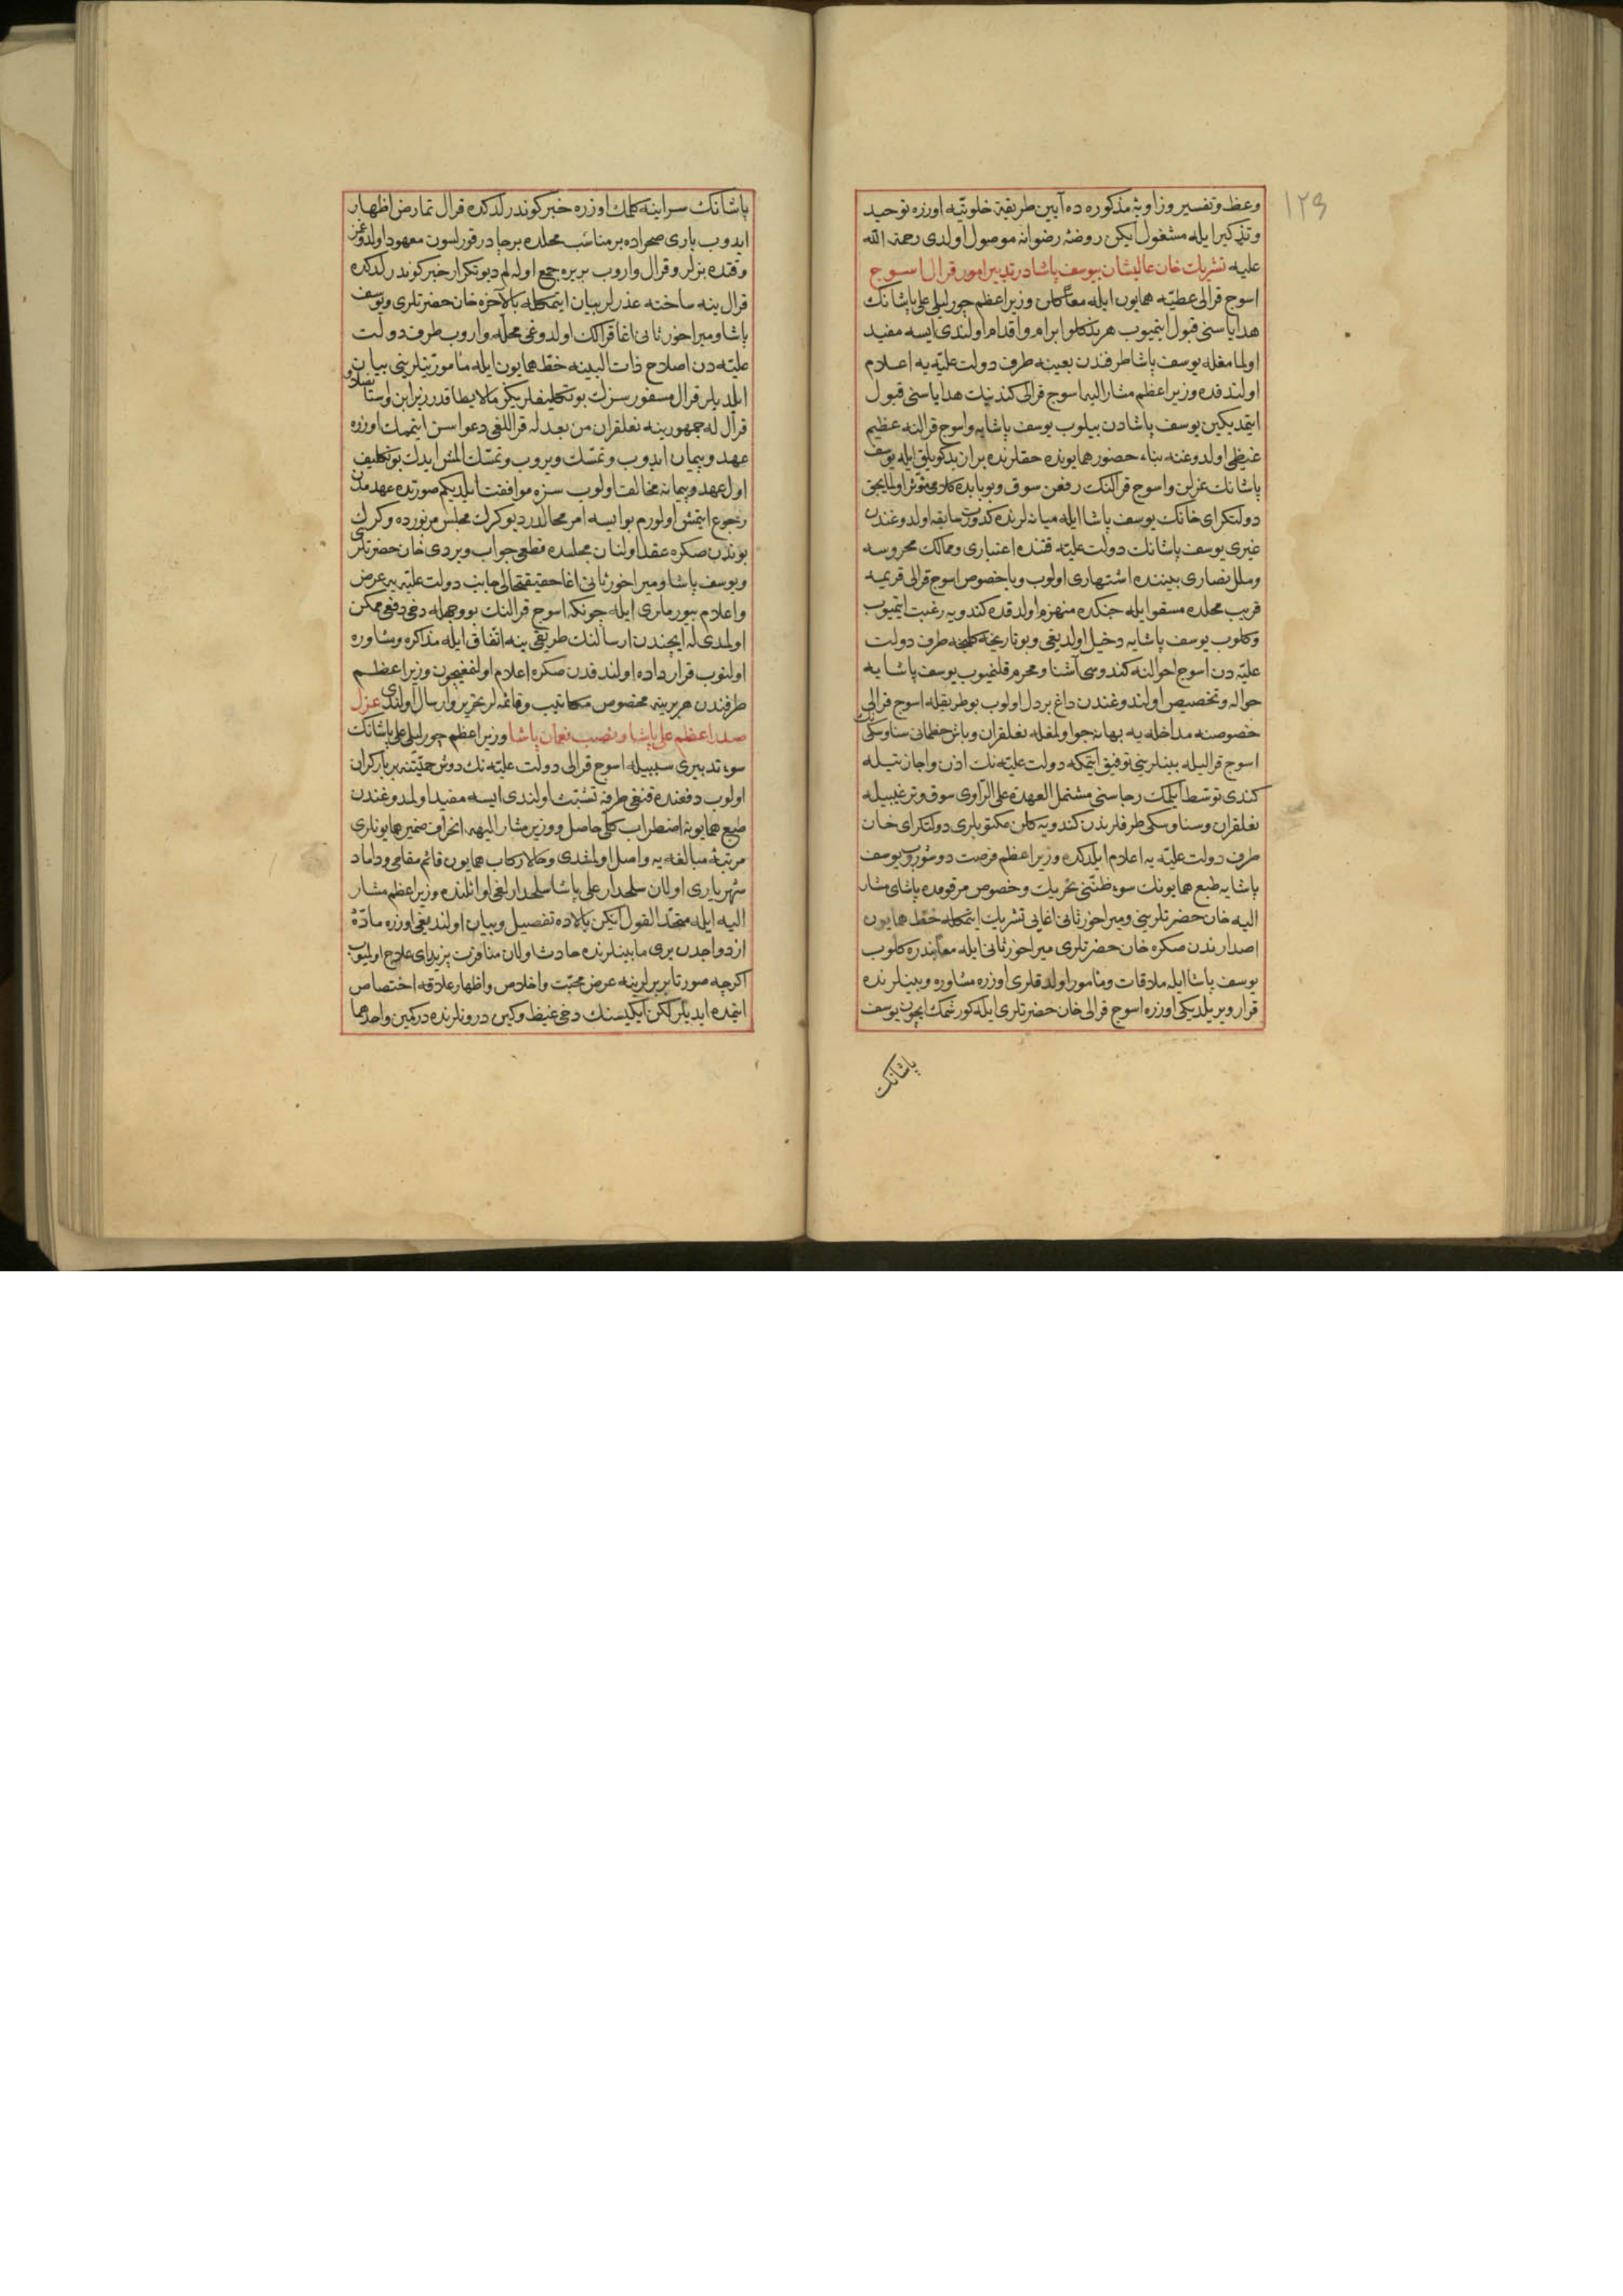 ١٢٩
وعظ وتفسير وزاويۀ مذكوره ده آيين طريقۀ خلوتيه اوزره توحيد
وتذكير ايله مشغول ايكن روضۀ رضوانه موصول اولدى رحمة الله
عليه تشريك خان عاليشان بيوسف پاشا در تدبير امور قرال اسوج
اسوج قرالى عطيۀ همايون ايله معا كلن وزيراعظم چورليلى على پاشانك
هداياسنى قبول ايتميوب هر نه كلو ابرام واقدام اولندى ايسه مفيد
اولمامغله يوسف پاشا طرفندن بعينه طرف دولت عليه يه اعلام
اولندقده وزيراعظم مشار اليه اسوج قرالى كندينك هداياسنى قبول
ايتمديكين يوسف پاشادن بيلوب يوسف پاشايه واسوج قرالنه عظيم
غيظى اولدوغنه بناء حضور همايونده حقلرنده بر از بدكويلق ايله يوسف
پاشانك عزلن واسوج قرالنك رفعن سوق وبو بابده كلامى مؤثر اولمايجق
دولتكراى خانك يوسف پاشا ايله ميانه لرنده كدورت سابقه اولدوغندن
غيرى يوسف پاشانك دولت عليه قتنده اعتبارى وممالك محروسه
وملل نصارى بيننده اشتهارى اولوب وبا خصوص اسوج قرالى قريمه
قريب محلده مسقو ايله جنكده منهزم اولدقده كندويه رغبت ايتميوب
وكلوب يوسف پاشايه دخيل اولديغى وبو تاريخه كلنجه طرف دولت
عليه دن اسوج احوالنه كندوسى آشنا ومحرم قلنميوب يوسف پاشايه
حواله وتخصيص اولندوغندن داغ بر دل اولوب بو طريقله اسوج قرالى
خصوصنه مداخله يه بهانه جو اولمغله نعلقران وباش خطمانى سناوسكى نك
اسوج قراليله بينلرينى توفيق ايتمكه دولت عليه نك اذن واجازتيله
كندى توسط ايلمك رجاسنى مشتمل العهدة على الراوى سوق وترغيبيله
نعلقران وسناوسكى طرفلرندن كندويه كلن مكتوبلرى دولتكراى خان
طرف دولت عليه يه اعلام ايلدكده وزيراعظم فرصت دوشوروب يوسف
پاشايه طبع همايونك سوء ظننى تحريك وخصوص مرقومده پاشاى مشار
اليه خان حضرتلرينى وميراخور ثانى اغايى تشريك ايتمكله خط همايون
اصدارندن صكره خان حضرتلرى ميراخور ثانى ايله معا بندره كلوب
يوسف پاشا ايله ملاقات ومأمور اولدقلرى اوزره مشاوره وبينلرنده
قرار ويريلديكى اوزره اسوج قرالى خان حضرتلرى ايله كورشمك ايچون يوسف
پاشانك
پاشانك سراينه كلمك اوزره خبر كوندرلدكده قرال تمارض اظهار
ايدوب بارى صحراده بر مناسب محلده برچادر قورلسون معهود اولدوغمز
وقتده بزلر وقرال واروب بر يره جمع اوله لم ديو تكرار خبر كوندرلدكده
قرال ينه ساخته عذرلر بيان ايتمكله بالآخره خان حضرتلرى ويوسف
پاشا وميراخور ثانى اغا قرالك اولدوغى محله واروب طرف دولت
عليه دن اصلاح ذات البينه خط همايون ايله مأموريتلرينى بيان
ايلديلر قرال مسفور سزك بو تكليفلريكز مالايطاقدر زيرا بن وستانسلاو
قرال له جمهورينه نعلقران من بعد له قراللغى دعواسن ايتممك اوزره
عهد وپيمان ايدوب وتمسك ويروب وتمسك المش ايدك بو تكليف
اول عهد وپيمانه مخالفت اولوب سزه موافقت ايلديكم صورتده عهدمدن
رجوع ايتمش اولورم بو ايسه امر محالدر ديو كرك مجلس مزبورده وكرك
بوندن صكره عقد اولنان مجلسده قطعى جواب ويردى خان حضرتلرى
ويوسف پاشا وميراخور ثانى اغا حقيقتحالى جانب دولت عليه يه عرض
واعلام بيورملرى ايله چونكه اسوج قرالنك بو وجهله دخى دفعى ممكن
اولمدى له ايچندن ارسالنك طريقى ينه اتفاق ايله مذاكره ومشاوره
اولنوب قرارداده اولندقدن صكره اعلام اولنمغيچون وزيراعظم
طرفندن هر برينه مخصوص مكاتيب وقائمه لر تحرير وارسال اولندى عزل
صدراعظم على پاشا ونصب نعمان پاشا وزيراعظم چورليلى على پاشانك
سوء تدبيرى سببيله اسوج قرالى دولت عليه نك دوش حميتنه بر باركران
اولوب دفعنده قنغى طرفه تشبث اولندى ايسه مفيد اولمدوغندن
طبع همايونه اضطراب كلى حاصل ووزير مشار اليهه انحراف ضمير همايونلرى
مرتبۀ مبالغه يه واصل اولمشدى وحالا ركاب همايون قائم مقامى وداماد
شهريارى اولان سلحدار على پاشا سلحدارلغى اوائلنده وزيراعظم مشار
اليه ايله متحد القول ايكن بالاده تفصيل وبيان اولنديغى اوزره مادۀ
ازدواجدن برى مابينلرنده حادث اولان منافرت پذيراى علاج اولميوب
اكرچه صورتا بربرلرينه عرض محبت واخلاص واظهار علاقۀ اختصاص
ايتمده ايديلر لكن ايكيسنك دخى غيظ وكين درونلرنده دركمين واحدهما